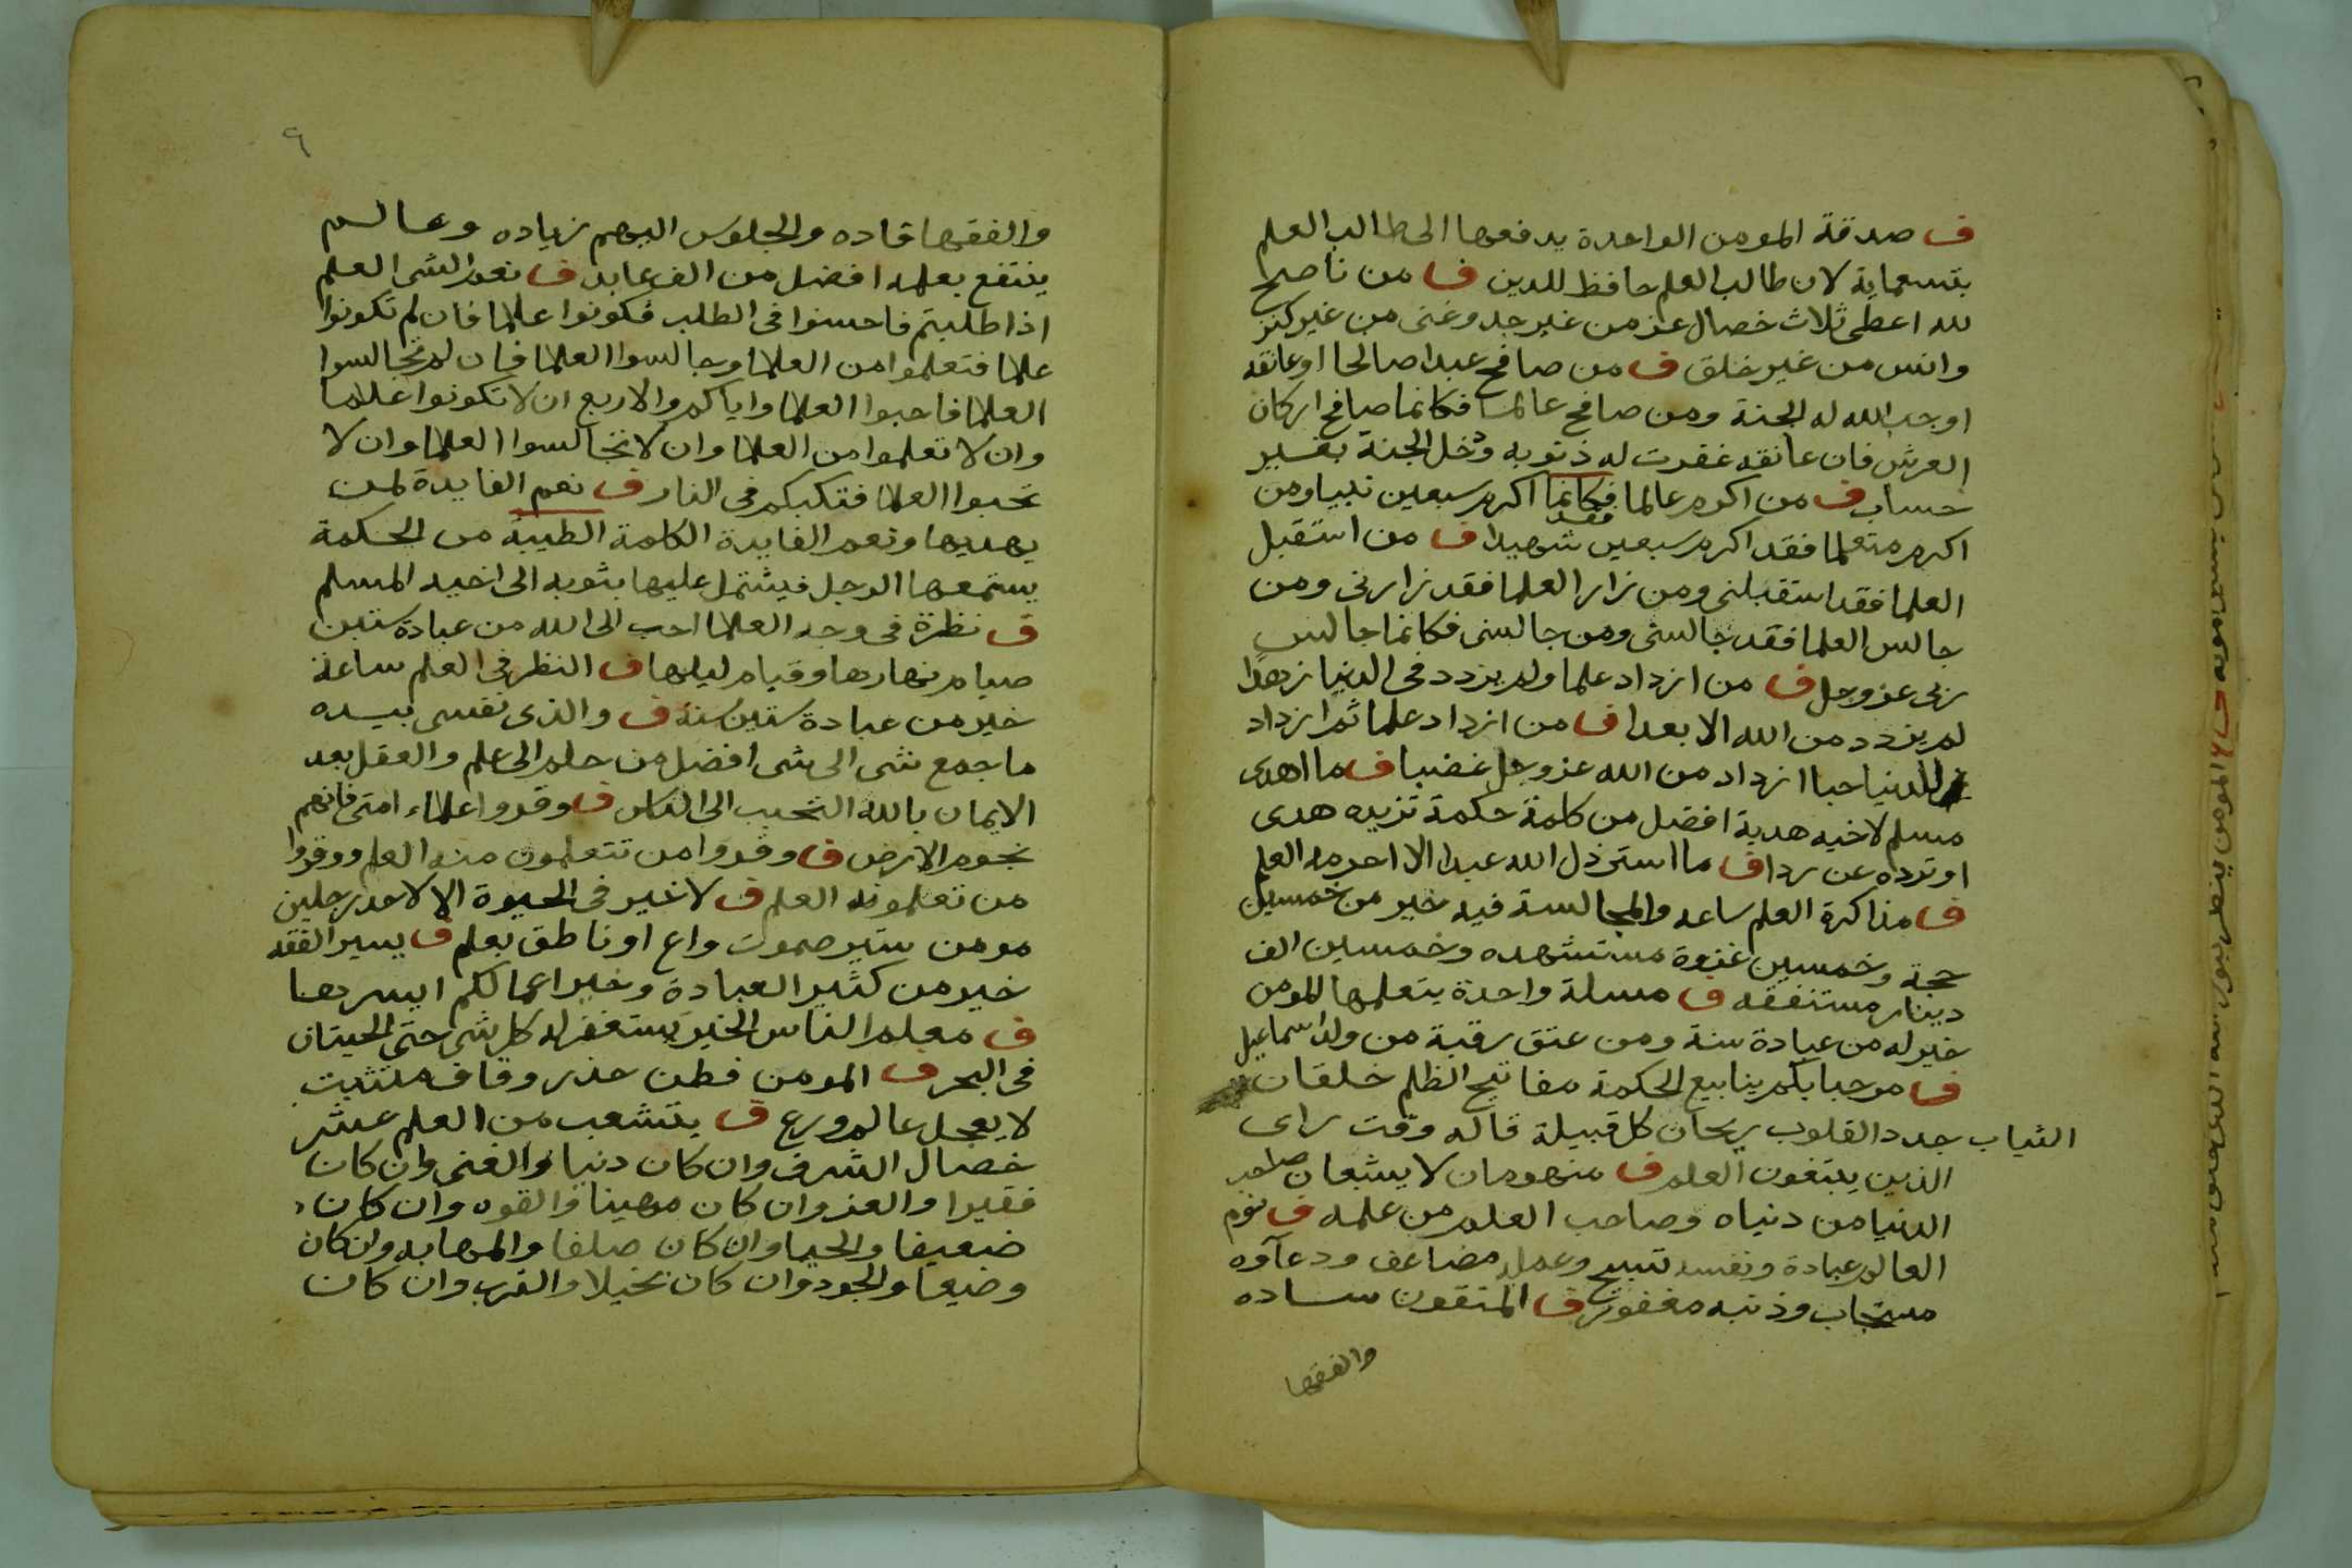 ف صدقة المومن الواحدة يدفعها الى طالب العلم
بتسعماية لان طالب العلم حافظ للدين ف من ناصح
لله اعطى ثلاث خصال عز من غير جد وغنى من غير كنز
وانس من غير خلق ف من صافح عبدا صالحا او عانقه
اوجب الله له الجنة ومن صافح عالما فكانما صافح اركان
العرش فان عانقه غفرت له ذنوبه ودخل الجنة بغير
حساب ف من اكرم عالما فكانما اكرم سبعين نبيا ومن
فقد
اكرم متعلما فقد اكرم سبعين شهيدا ف من استقبل
العلما فقد استقبلني ومن زار العلما فقد زارني ومن
جالس العلما فقد جالسني ومن جالسني فكانما جالس
ربي عز وجل ف من ازداد علما ولم يزدد في الدنيا زهدا
لم يزدد من الله الا بعدا ف من ازداد علما ثم ازداد
للدنيا حبا ازداد من الله عز وجل غضبا ف ما اهدى
مسلم لاخيه هدية افضل من كلمة حكمة تزيده هدى
او ترده عن ردا ف ما استرذل الله عبدا الا احرمه العلم
ف مذاكرة العلم ساعه والمجالسة فيه خير من خمسين
حجة وخمسين غزوة مستشهده وخمسين الف
دينار مستنفقه ف مسلة واحدة يتعلمها المومن
خير له من عبادة سنة ومن عتق رقبة من ولد اسماعيل
ف مرحبا بكم ينابيع الحكمة مفاتيح الظلم خلقان
الثياب جدد القلوب ريحان كل قبيلة قاله وقت راى
الذين يبتغون العلم ف منهومان لا يشبعان صاحب
الدنيا من دنياه وصاحب العلم من علمه ف نوم
العالم عبادة ونفسه تسبيح وعمله مضاعف ودعآوه
مستجاب وذنبه مغفور ف المتقون ساده
والفقها
٩
والفقها قاده والجلوس اليهم زياده وعالم
ينتفع بعلمه افضل من الف عابد ف نعم الشى العلم
اذا طلبتم فاحسنوا في الطلب فكونوا علما فان لم تكونوا
علما فتعلموا من العلما وجالسوا العلما فان لم تجالسوا
العلما فاحبوا العلما واياكم والاربع ان لا تكونوا علاما
وان لا تعلموا من العلما وان لا تجالسوا العلما وان لا
تحبوا العلما فتكبكم في النار ف نعم الفايدة لمن
يهديها ونعم الفايدة الكلمة الطيبة من الحكمة
يستمعها الرجل فيشتمل عليها بثوبه الى اخيه المسلم
ف نظرة في وجه العلما احب الى الله من عبادة ستين
صيام نهارها وقيام ليلها ف النظر في العلم ساعة
خير من عبادة ستين سنة ف والذي نفسي بيده
ما جمع شى الى شى افضل من حلم الى علم والعقل بعد
الايمان بالله التحبب الى الناس ف وقروا علماء امتي فانهم
نجوم الارض ف وقروا من تتعلمون منه العلم ووقروا
من تعلمونه العلم ف لا خير في الحيوة الا لاحد رجلين
مومن ستير صموت واع او ناطق بعلم ف يسير الفقه
خير من كثير العبادة وخير اعمالكم ايسرها
ف معلم الناس الخير يستغفر له كل شى حتى الحيتان
في البحر ف المومن فطن حذر وقاف متثبت
لا يعجل عالم ورع ف يتشعب من العلم عشر
خصال الشرف وان كان دنيا والغنى وان كان
فقيرا والعز وان كان مهينا والقوه وان كان
ضعيفا والحيا وان كان صلفا والمهابه وان كان
وضيعا والجود وان كان بخيلا والقرب وان كان